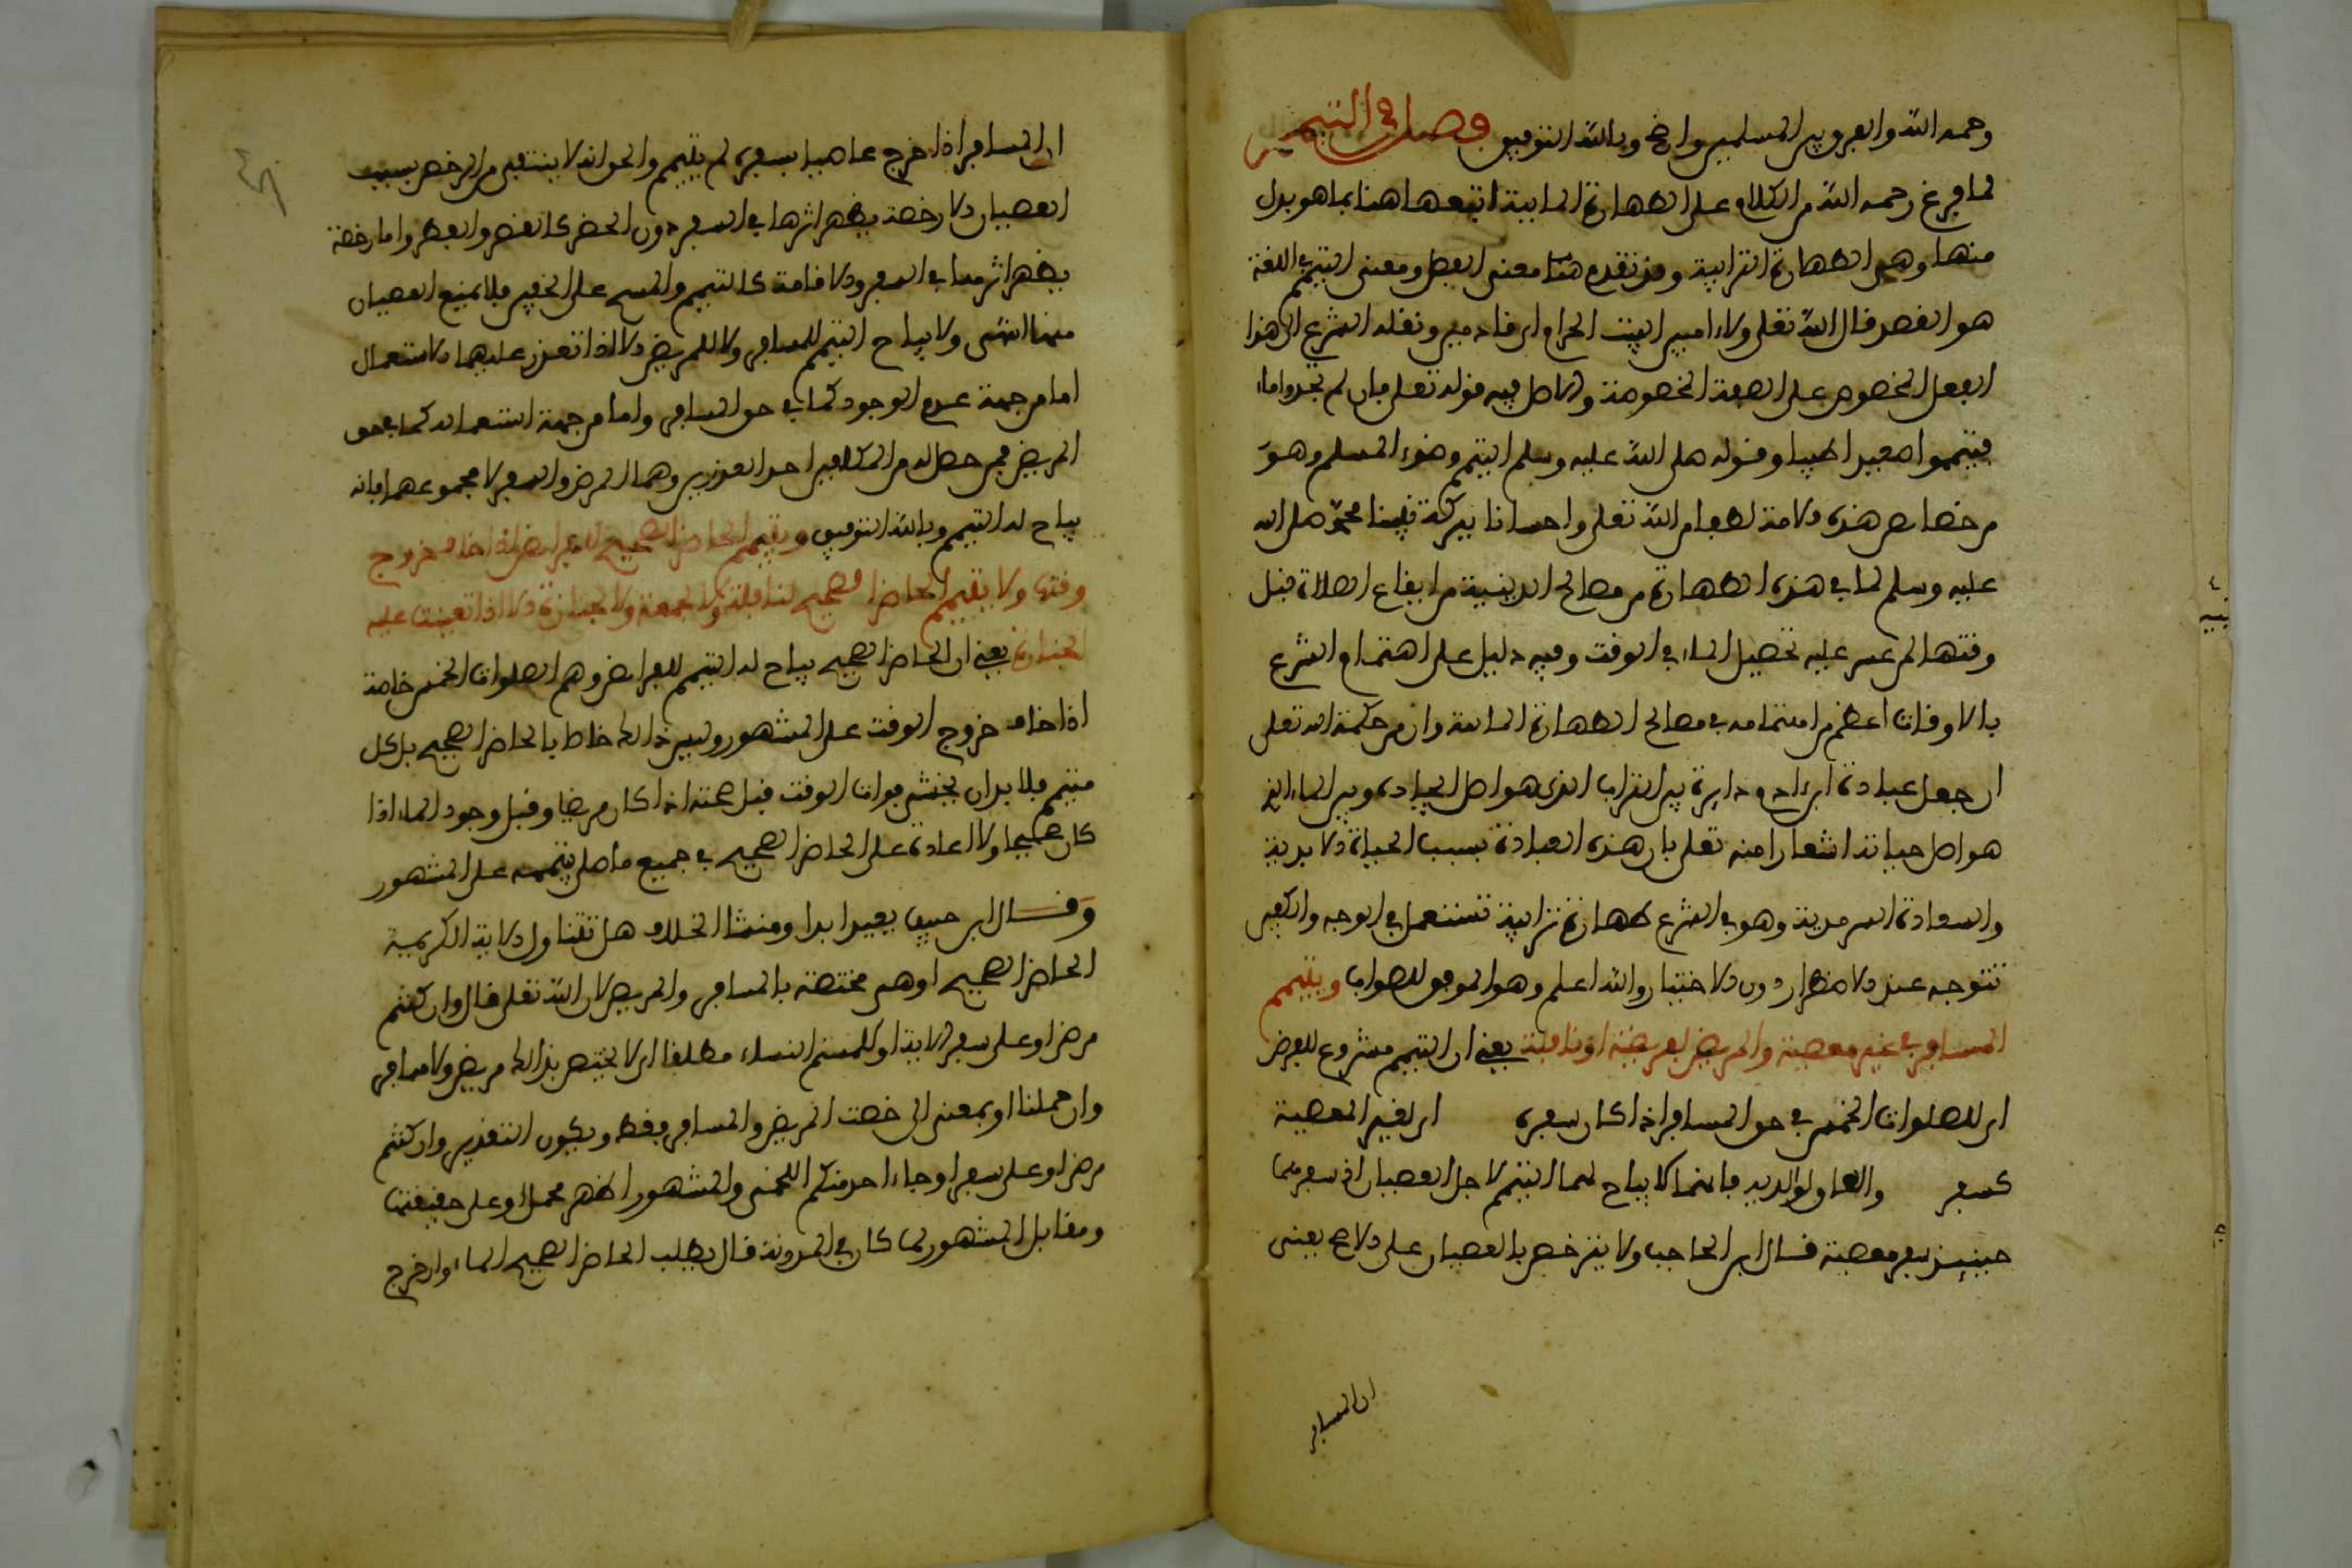 رحمه الله والعروبين المسلمين وارض وبالله التوفيق فصل في التيمم
لما فرغ رحمه الله من الكلام على الطهارة المايية اتبعها هنا بما هو بدل
منها وهي الطهارة الترابية وقد تقدم هنا معنى الفصل ومعنى التيمم في اللغة
هو القصد قال الله تعلى ولا امين البيت الحرام اي قاصدين ونقله الشرع الى هذا
الفعل المخصوص على الصفة المخصوصة والاصل فيه قوله تعلى فان لم تجدوا ماء
فتيمموا صعيدا طيبا وقوله صلى الله عليه وسلم التيمم وضوء المسلم وهو
من خصايص هذه الامة لطفا من الله تعلى واحسانا ببركة نبينا محمد صلى الله
عليه وسلم لما في هذه الطهارة من مصالح الدينية من ايقاع الصلاة قبل
وقتها لمن عسر عليه تحصيل الماء في الوقت وفيه دليل على اهتمام الشرع
بالاوقات اعظم من اهتمامه في مصالح الطهارة المايية وان من حكمة الله تعلى
ان جعل عبادة ابن ادم دايرة بين التراب الذي هو اصل ايجاده وبين الماء الذي
هو اصل حياته اشعارا منه تعلى بان هذه العبادة بسبب الحياة الابدية
والسعادة السرمدية وهو في الشرع طهارة ترابية تستعمل في الوجه والكفين
تتوجه عند الاضطرار دون الاختيار والله اعلم وهو الموفق للصواب ويتيمم
المسافر في غير معصية والمريض لفريضة او نافلة يعني ان التيمم مشروع للفرض
اي للصلوات الخمس في حق المسافر اذا كان سفره اي لغير المعصية
كسفر والعاق لوالديه فانهما لا يباح لهما التيمم لاجل العصيان اذ سفرهما
حينيذ سفر معصية قال ابن الحاجب ولا يترخص بالعصيان على الاصح يعني
ان المسافر
ان المسافر اذا خرج عاصيا بسفره لم يتيمم والحق انه لا ينتفي من الرخص بسبب
العصيان الا رخصة يظهر اثرها في السفر دون الحضر كالقصر والفطر واما رخصة
يظهر اثرها في السفر والاقامة كالتيمم والمسح على الخفين فلا يمنع العصيان
منها انتهى ولا يباح التيمم للمسافر ولا للمريض الا اذا تعذر عليهما الاستعمال
اما من جهة عدم الوجود كما في حق المسافر واما من جهة استعماله كما في حق
المريض فمن حصل له من المكلفين احد العذرين وهما المرض والسفر لا مجموعهما فانه
يباح له التيمم وبالله التوفيق ويتيمم الحاضر الصحيح للفرايض اذا خاف خروج
وقتها ولا يتيمم الحاضر الصحيح لنافلة ولا لجمعة ولا لجنازة الا اذا تعينت عليه
الجنازة يعني ان الحاضر الصحيح يباح له التيمم للفرايض وهي الصلوات الخمس خاصة
اذا خاف خروج الوقت على المشهور وليس ذالك خاصا بالحاضر الصحيح بل كل
متيمم فلا بد ان يخشى فوات الوقت قبل صحته اذا كان مريضا وقبل وجود الماء اذا
كان صحيحا ولا اعادة على الحاضر الصحيح في جميع ما صلى بتيممه على المشهور
وقال ابن حبيب يعيد ابدا ومنشا الخلاف هل تتناول الاية الكريمة
الحاضر الصحيح او هي مختصة بالمسافر والمريض لان الله تعلى قال وان كنتم
مرضى او على سفر الاية او لامستم النساء مطلقا اي لا يختص بذالك مريض ولا مسافر
وان حملنا او بمعنى الى خصت المريض والمسافر فقط ويكون التقدير وان كنتم
مرضى او على سفر او جاء احد منكم اللخمي والمشهور اظهر محمل او على حقيقتها
ومقابل المشهور لما كان في المدونة قال يطلب الحاضر الصحيح الماء وان خرج